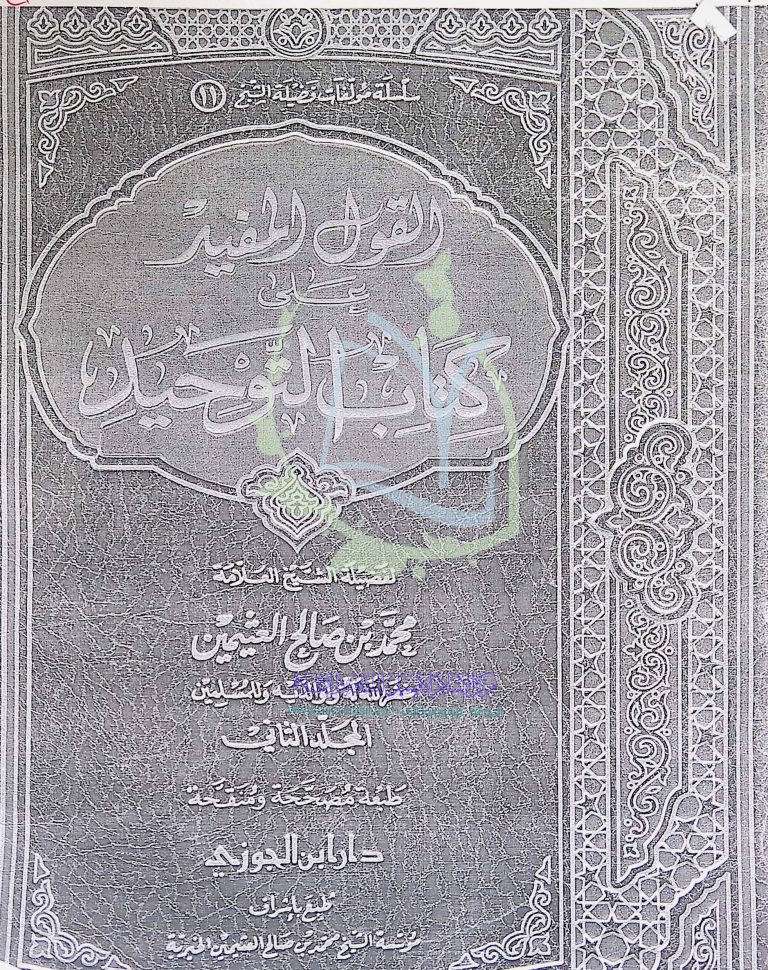 سلسلة مؤلفات فضيلة الشيخ ١١
القول المفيد
على
كتاب التوحيد
لفضيلة الشيخ العلامة
محمد بن صالح العثيمين
غفر الله له ولوالديه وللمسلمين
المجلد الثاني
طبعة مصححة ومنقحة
دار ابن الجوزي
طبع بإشراف
مؤسسة الشيخ محمد بن صالح العثيمين الخيرية